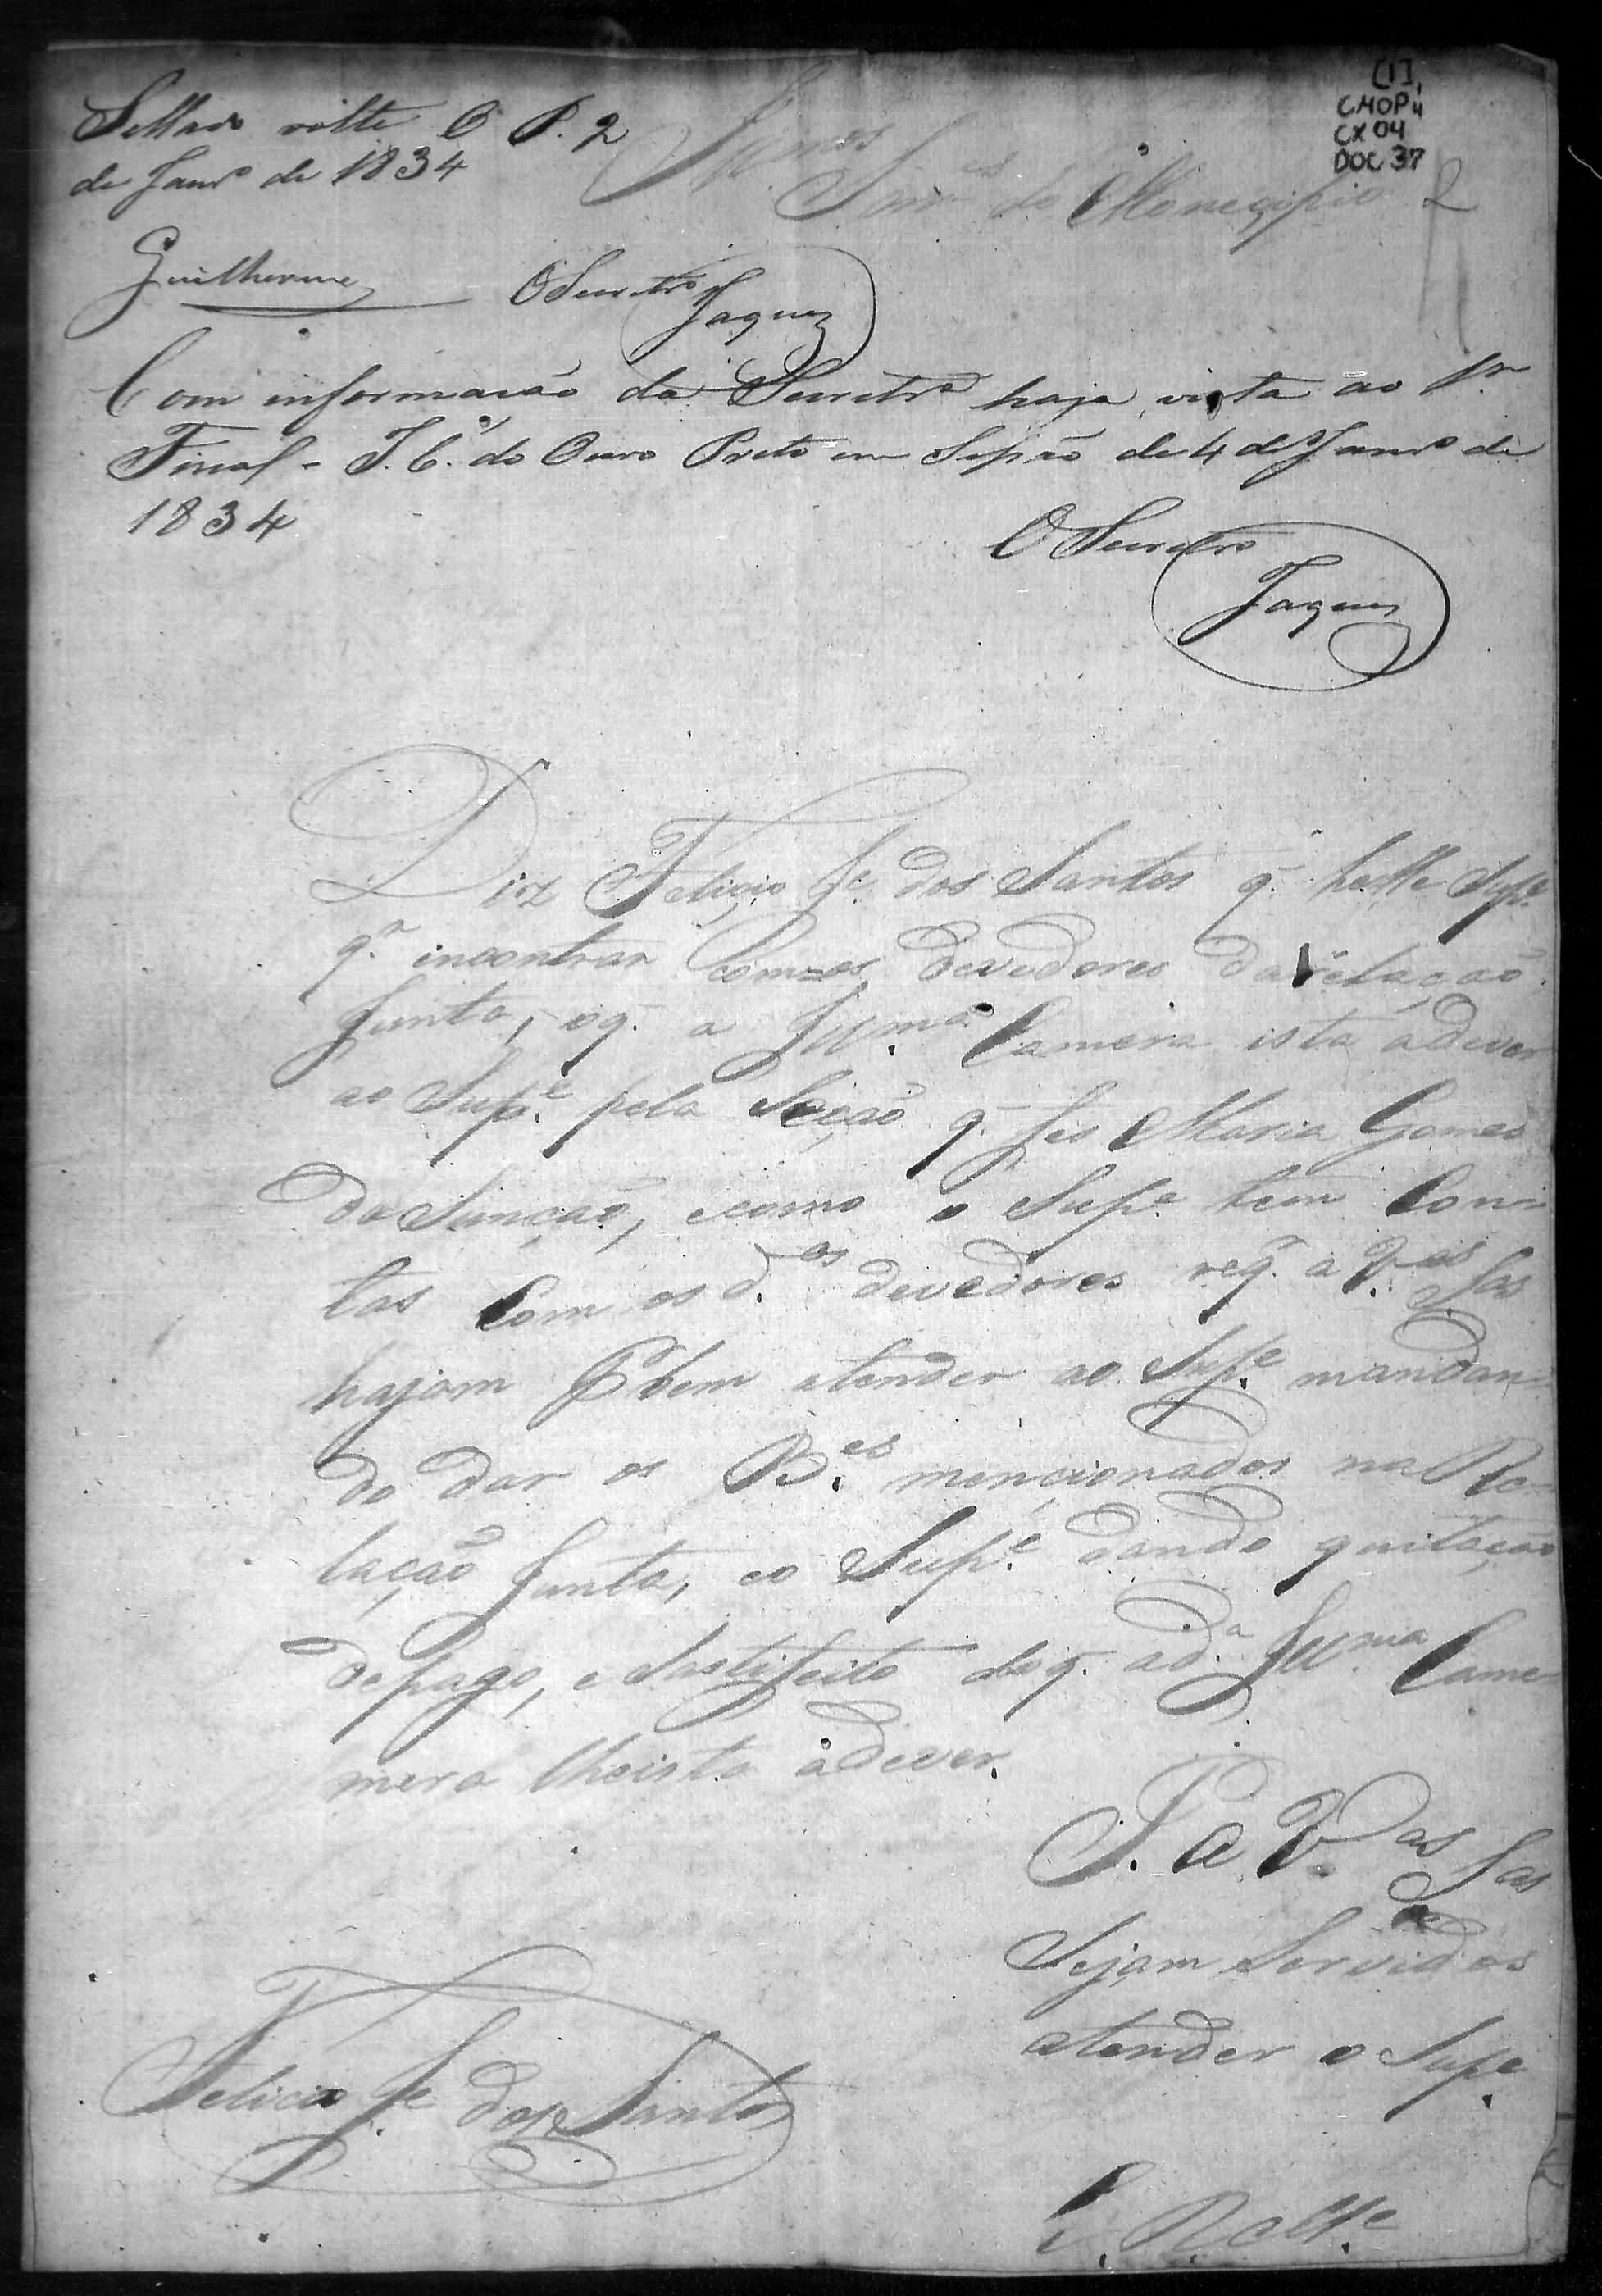 [1]
CMOP
CX 04
DOC 37
Sellado volte O P. 2
de Janr.o de 1834
Guilherme
O Secretr.o
Jaques
Snr.es do Monecipio
Com informação do Secretr.o haja vista ao Pr.
Fiscal - I. C. do Ouro Preto em Sessão de 4 de Janr.o de
1834
O Secretr.o
Jaques
Diz Felicio Je. dos Santos q. Sup.e
q.r incontrar Com os devedores da relação
junta, o q. a Illm.a Camera ista a dever
ao Sup.e pela Seção q. fes Maria Gomes
da Sunção, e como o Sup.e tem Con
tas Com os d.os devedores req. a V.as S.as
hajam P bem atender ao Sup.e mandan
do dar os B.es mencionados na Re
lação junta, e o Sup.e dando quitação
de pago, e Sastifeito do q. a d.a Illma Came
mera lhe ista a dever.
P. a V.as S.as
Sejam Servidos
atender o Supe
Felicio Je. dos Santos
E. R. M.ce